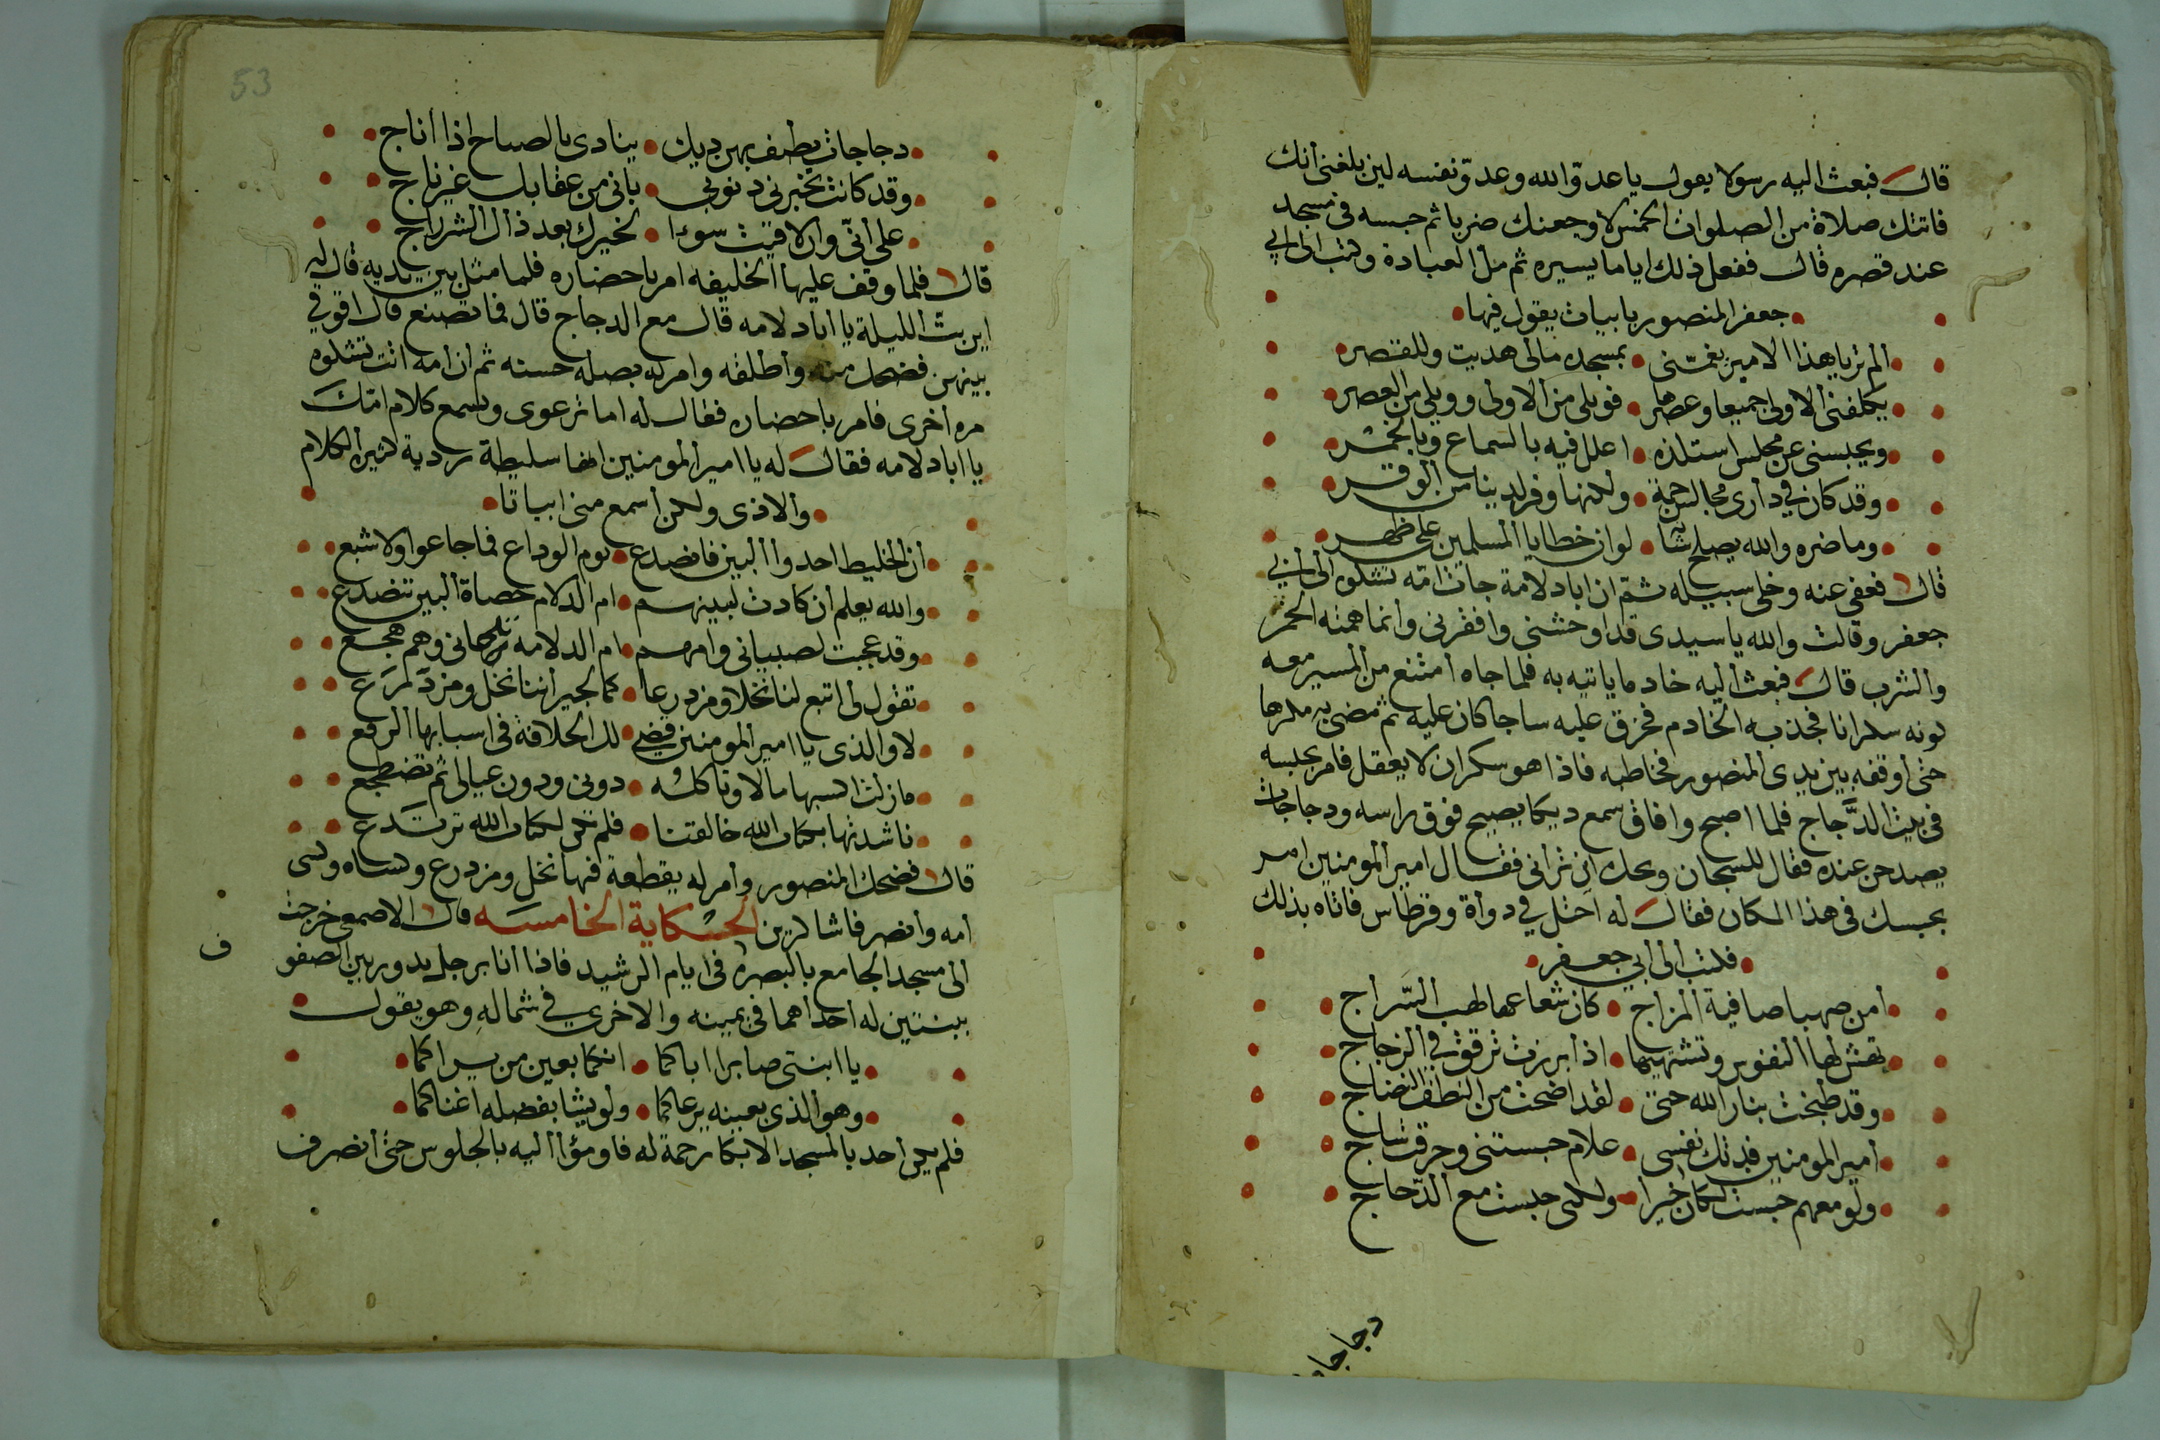 قال فبعث اليه رسولا يقول يا عدو الله وعدو نفسه لين بلغنى أنك
فاتتك صلاة من الصلوات الخمس لاوجعنك ضربا ثم حبسه فى مسجد
عند قصره قال ففعل ذلك اياما يسيره ثم مل العبادة وكتب الى ابي
جعفر المنصور بابيات يقول فيها
الم تر يا هذا الامير بغمنى • بمسجده مالى هديت وللقصر
يكلفنى الاولى جميعا وعصرها • فويلى من الاولى وويلى من العصر
ويحبسنى عن مجلس استلذه • اعلل فيه بالسماع وبالخمر
وقد كان فى دارى مجالس جمة •
وما ضره والله يصلح شأنه • لو ان خطايا المسلمين على ظهر
قال فعفى عنه وخلى سبيله ثم ان ابا دلامة جات امه تشكوه الى ابي
جعفر وقالت والله يا سيدى قد اوحشنى وافقرنى وانما همته الخمر
والشرب قال فبعث اليه خادما ياتيه به فلما جاه امتنع من المسير معه
كونه سكرانا فجذبه الخادم فخزق عليه ساجا كان عليه ثم مضى به مكرها
حتى أوقفه بين يدى المنصور فخاطبه فاذا هو سكران لا يعقل فامر بحبسه
فى بيت الدجاج فلما اصبح وافاق سمع ديكا يصيح فوق راسه ودجاجات
يصدحن عنده فقال للسجان ويحك اين ترانى فقال امير المومنين امر
بحبسك فى هذا المكان فقال له احتل فى دوأة وقرطاس فاتاه بذلك
فكتب الى ابي جعفر
أمن صهبا صافية المزاج • كان شعاعها لهب السراج
تهش لها النفوس وتشتهيها • اذا برزت ترقرق فى الزجاج
وقد طبخت بنار الله حتى • لقد اضحت من النطف النضاج
أمير المومنين فدتك نفسى • علام حبستنى وخرقت ساج
ولو معهم حبست لكان خيرا • ولكنى حبست مع الدجاج
دجاجات
53
دجاجات يطيف بهن ديك • ينادى بالصباح اذا أناج
وقد كانت تخبرنى ذنوبى • بانى من عقابك غير ناج
على أنى وان لاقيت سوءا • لخيرك بعد ذال الشر راج
قال فلما وقف عليها الخليفه امر باحضاره فلما مثل بين يديه قال له
اين بت الليلة يا أبا دلامه قال مع الدجاج قال فما تصنع قال اقوقى
بينهن فضحك منه وأطلقه وامر له بصله حسنه ثم ان امه اتت تشكوه
مره أخرى فامر باحضاره فقال له اما ترعوى وتسمع كلام امك
يا ابا دلامه فقال له يا امير المومنين انها سليطة ردية كثيرة الكلام
والاذى ولكن أسمع منى ابياتا
أن الخليط احدوا البين فانصدع • يوم الوداع فما جاعوا ولا شبع
والله يعلم أن كادت لبينهم • ام الدلام حصاة البين تنصدع
وقد عجبت لصبيانى وامهم • ام الدلامه وهم هجع
تقول لى اتبع لنا نخلا ومزدرعا • كما لجيراننا نخل ومزدرع
لا والذى يا امير المومنين قضى • لك الخلافة فى اسبابها الرفع
مازلت اكسبها مالا وتاكله • دونى ودون عيالى ثم تضطجع
ناشدتها بكتاب الله خالقتنا • فلم تكن لكتاب الله ترتدع
قال فضحك المنصور وأمر له بقطعة فيها نخل ومزدرع وكساه وكسى
أمه وأنصرفا شاكرين الحكاية الخامسه قال الاصمعى خرجت
الى مسجد الجامع بالبصره فى ايام الرشيد فاذا انا برجل يدور بين الصفو
ف
ببنتين له أحداهما فى يمينه والاخرى فى شماله وهو يقول
يا ابنتى صابرا اباكما • انكما بعين من يراكما
وهو الذى بعينه يرعاكما • ولو يشا بفضله اغناكما
فلم يبق أحد بالمسجد الا بكا رحمة له فاومؤا اليه بالجلوس حتى أنصرف